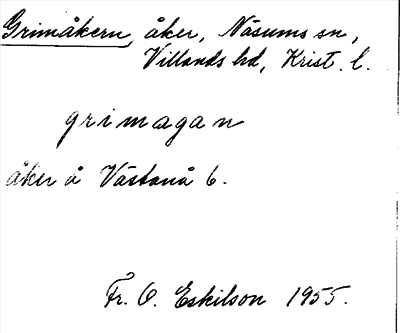 Grimåkern, åker, Näsums sn,
Villands hd, Krist. l.
grimagan
åker å Västanå 6.
Fr. O. Eskilson 1955.